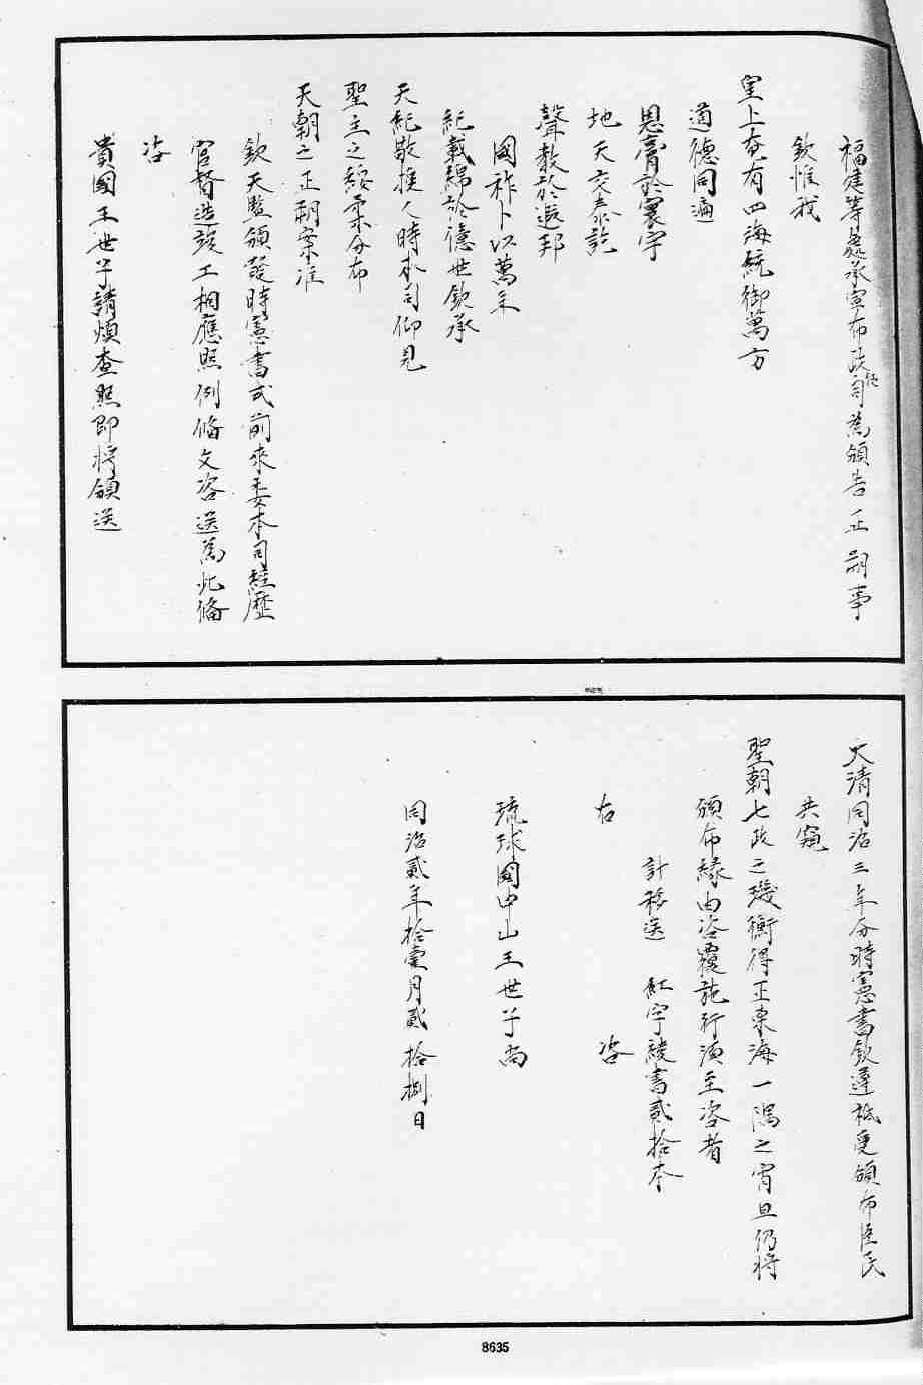 福建等處承宣布政使司為頒告正朔事
欽惟我
皇上奄有四海統御萬方
道德同遍
恩膏於寰宇
地天交泰訖
聲教於遐邦
國祚卜以萬年
紀載緜於億世欽承
天紀敬授人時本司仰見
聖主之綏柔分布
天朝之正朔案准
欽天監頒發時憲書式前來委本司經歷
官督造竣工相應照例備文咨送為此備
咨
貴國王世子請煩查照即將頒送
大清同治三年分時憲書欽遵祗受頒布臣民
共窺
聖朝七政之璣衡得正東海一隅之宵旦仍將
頒布緣由咨覆施行須至咨者
計移送 紅字綾書貳拾本
右 咨
琉球國中山王世子尚
同治貳年拾壹月貳拾捌日
8635